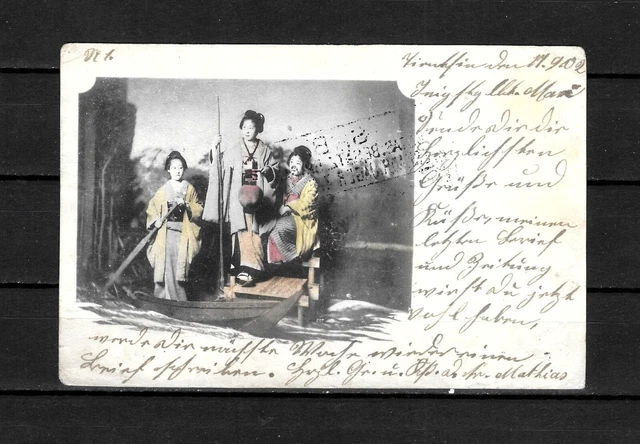 Tientsin den 17.9.02
Innigstgeliebte Marie
Sende Dir die
Herzlichsten
Grüße und
Küße, meinen
letzten Brief
und Zeitung
wirst du jetzt
wohl haben,
werde Dir nächste Woche wieder einen
Brief schreiben. Hrzl. Gr. u. Mathias